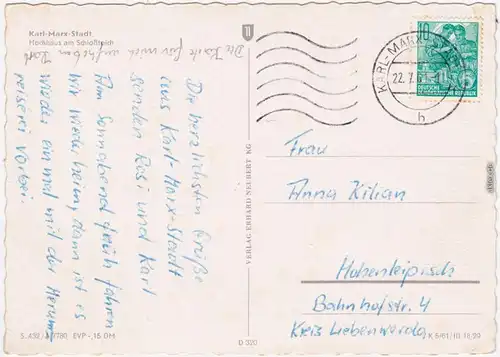 Karl-Marx-Stadt
Hochhaus am Schloßteich
Die Karte für mich aufheben Karl
Die herzlichsten Grüße
aus Karl-Marx-Stadt
senden Rosi und Karl
Am Sonnabend früh fahren
wir wieder heim, dann ist es
wieder einmal mit der Herum-
reiserei vorbei.
S. 432/ EVP -,15 DM
VERLAG ERHARD NEUBERT KG
D 320
10
DEUTSCHE
DEMOKRATISCHE REPUBLIK
KARL-MARX-
22.7.61
h
Frau
Anna Kilian
Hohenleipisch
Bahnhofstr. 4
Kreis Liebenwerda
K 6/61/10 18/20